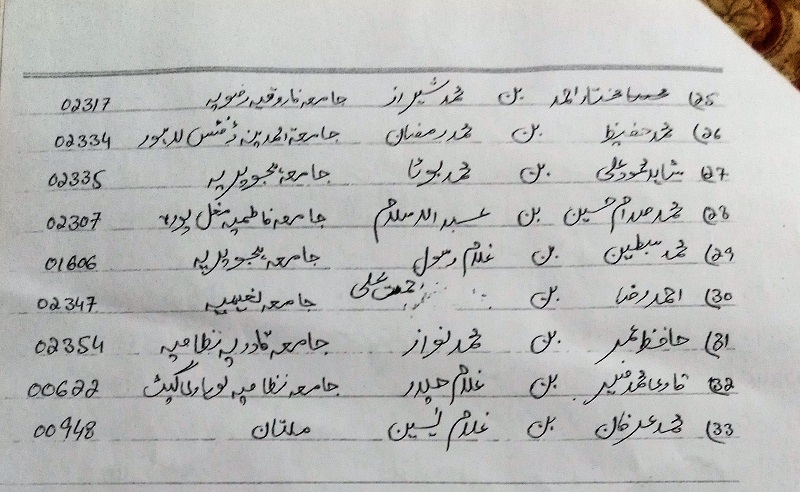 (25 مختار احمد بن محمد شیراز جامعہ فاروقیہ رضویہ 02317
(26 محمد حفیظ بن محمد رمضان جامعۃ المدینہ ڈیفنس لاہور 02334
(27 شاہد محمود علی بن محمد بوٹا جامعہ ہجویریہ 02335
(28 محمد صدام حسین بن عبدالسلام جامعہ فاطمیہ مغل پورہ 02307
(29 محمد سبطین بن غلام رسول جامعہ ہجویریہ 01606
(30 احمد رضا بن علی جامعہ نعیمیہ 02347
(31 حافظ عمر بن محمد نواز جامعہ قادریہ نظامیہ 02354
(32 قاری محمد منیر بن غلام حیدر جامعہ نظامیہ لوہاری گیٹ 00622
(33 محمد عرفان بن غلام یٰسین ملتان 00948